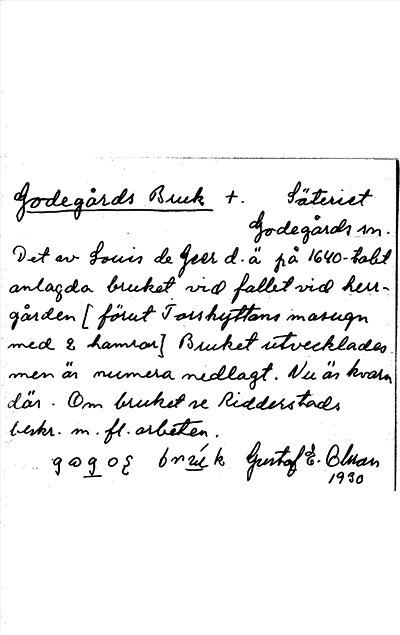 Godegårds Bruk +. Säteriet
Godegårds sn.
Det av Louis de Geer d. ä på 1640-talet
anlagda bruket vid fallet vid herr-
gården [förut Torshyttans masugn
med 2 hamrar] Bruket utvecklades
men är numera nedlagt. Nu är kvarn
där. Om bruket se Ridderstads
beskr. m. fl. arbeten.
Gustaf E. Olsson
1930